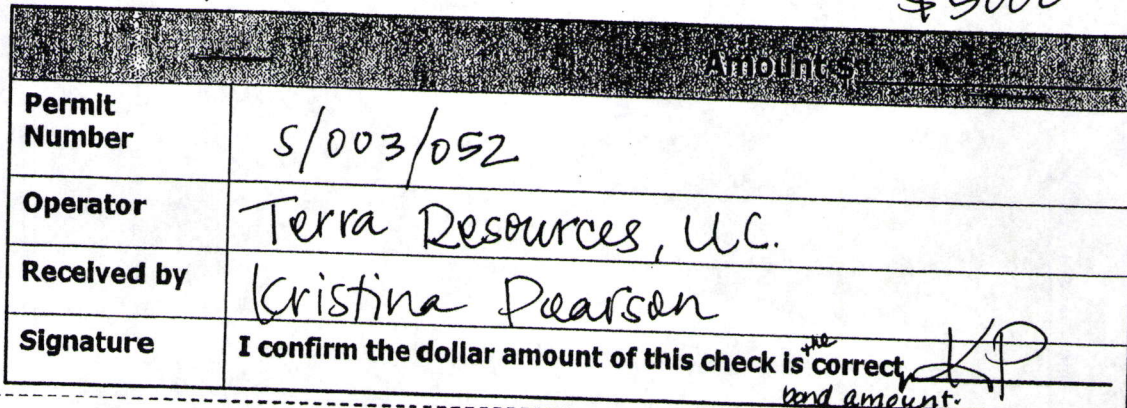 Amount $
Permit
Number
S/003/052
Operator
Terra Resources, LLC.
Received by
Kristina Pearson
Signature
I confirm the dollar amount of this check is the correct KP
bond amount.